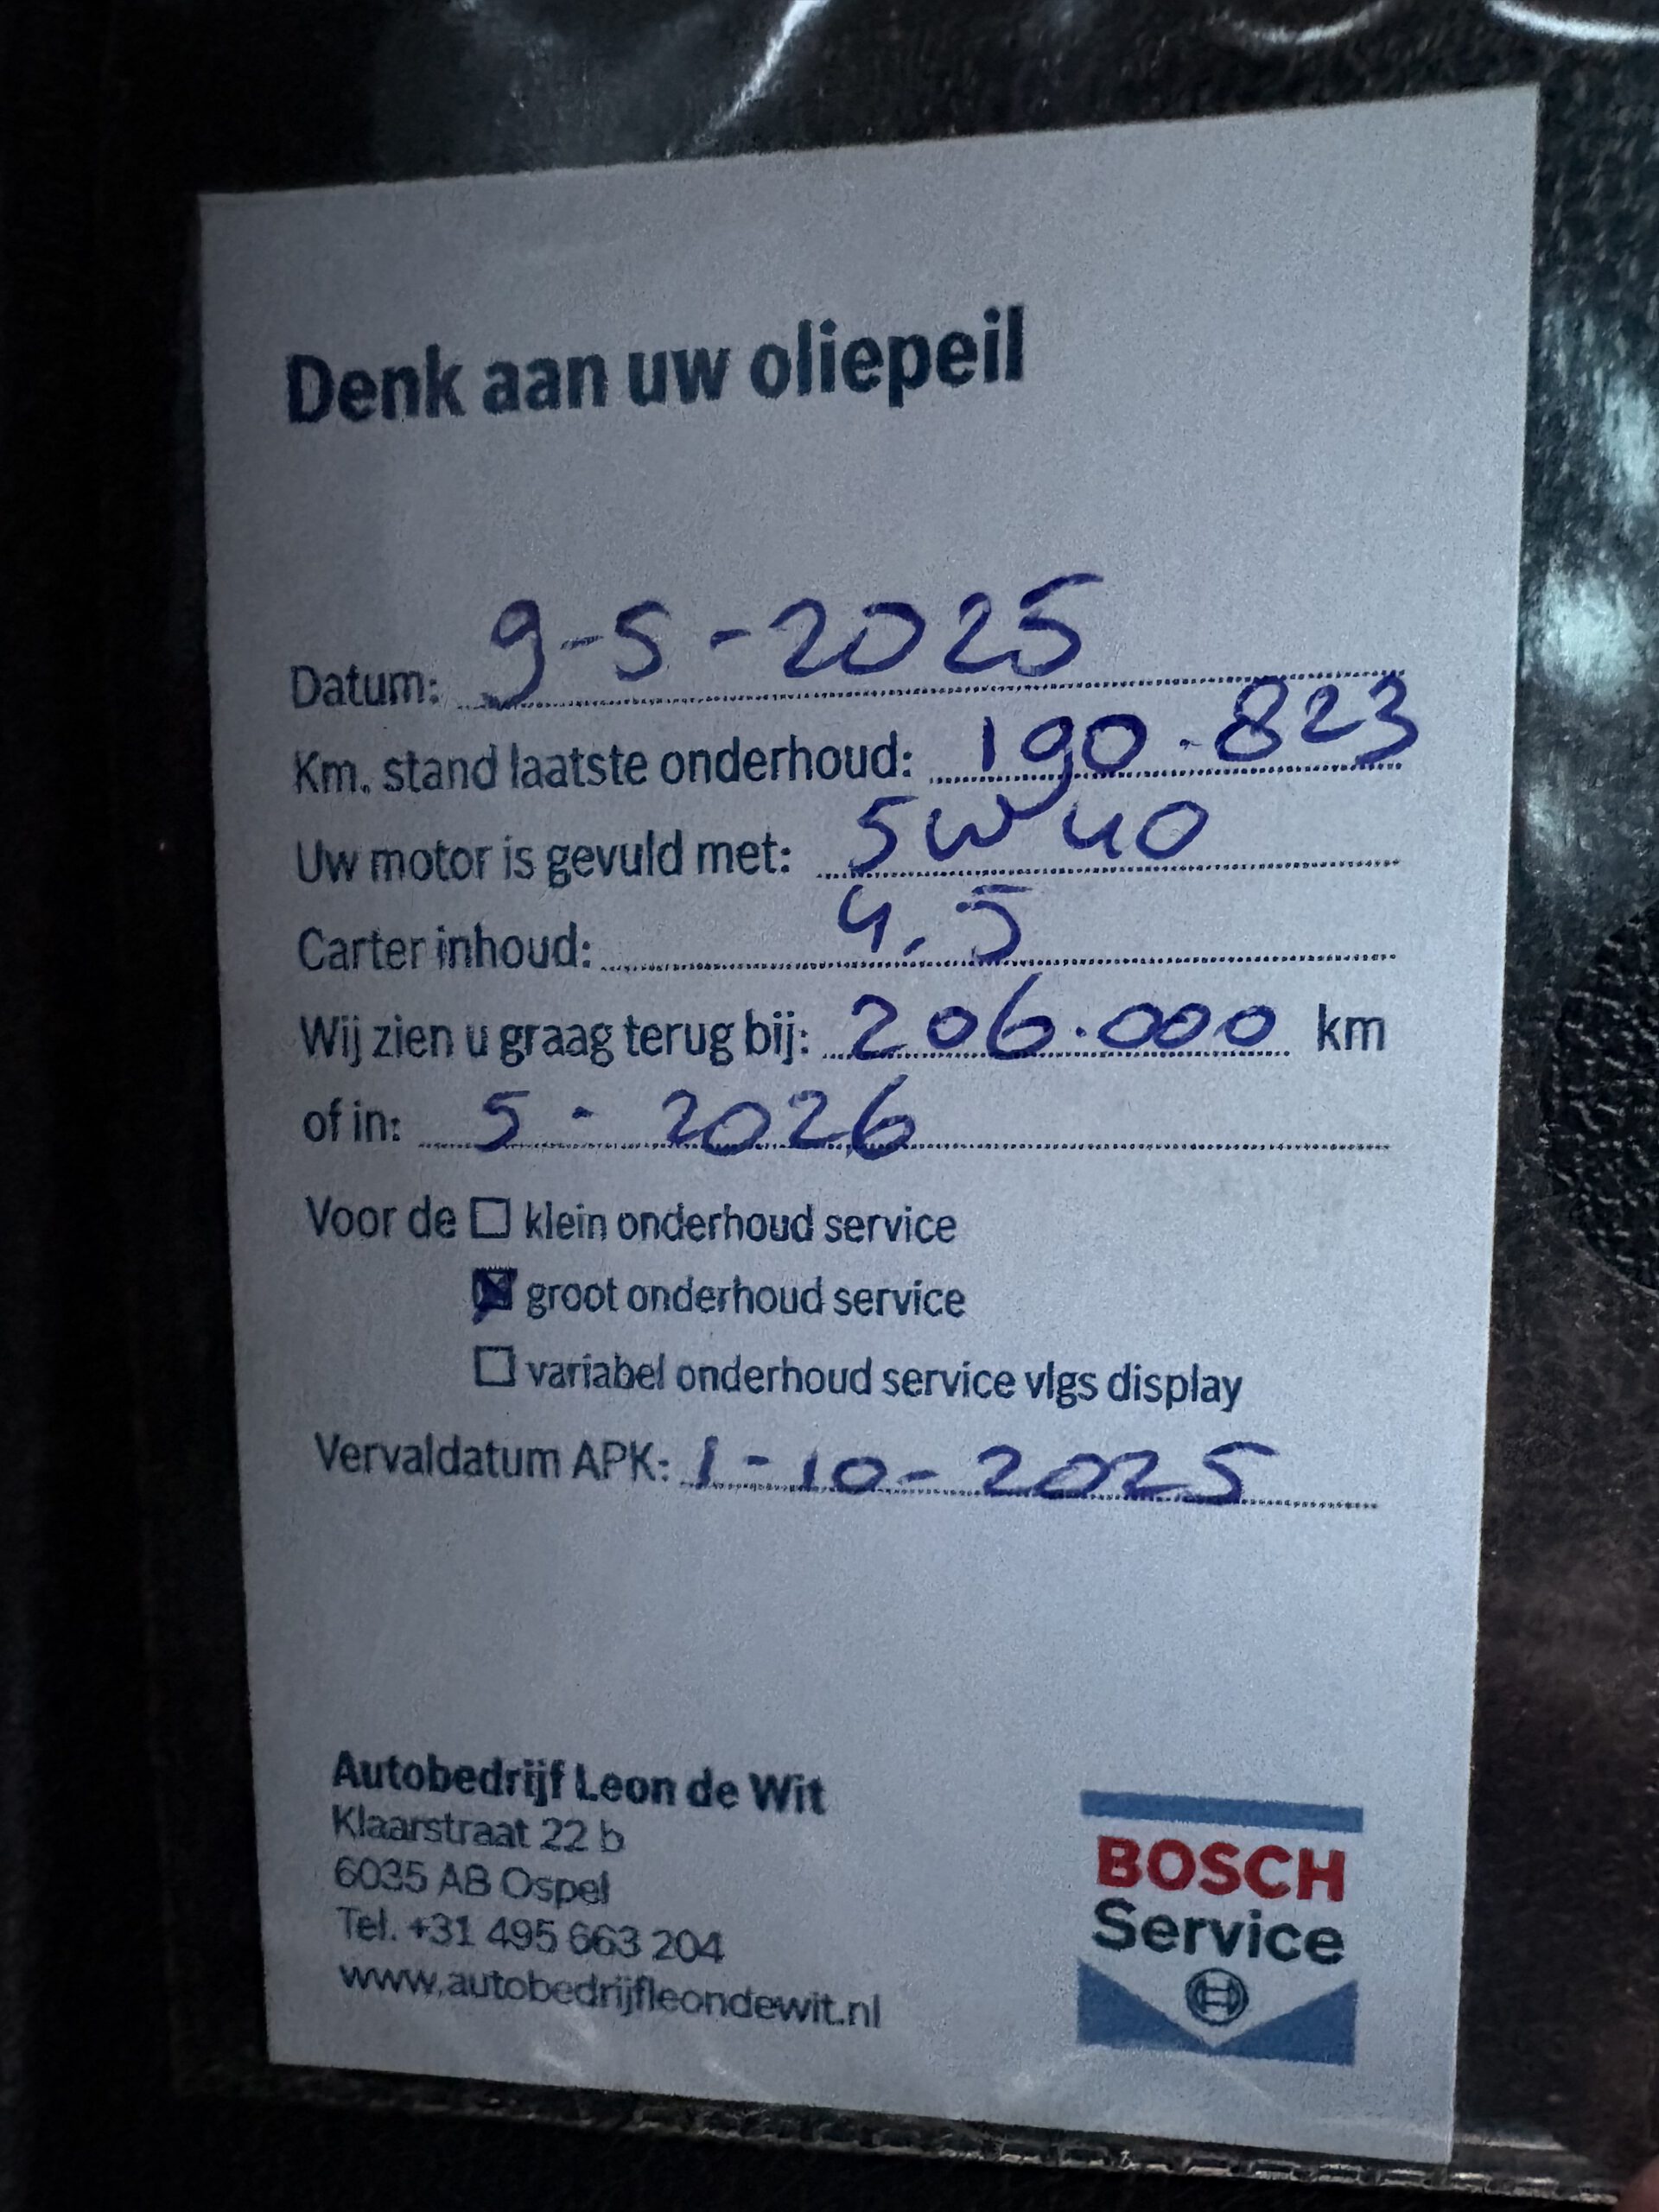 Denk aan uw oliepeil
Datum: 9-5-2025
Km. stand laatste onderhoud: 190.823
Uw motor is gevuld met: 5W40
Carter inhoud: 4,5
Wij zien u graag terug bij: 206.000 km
of in: 5-2026
Voor de ☐ klein onderhoud service
☒ groot onderhoud service
☐ variabel onderhoud service vlgs display
Vervaldatum APK: 1-10-2025
Autobedrijf Leon de Wit
Klaarstraat 22 b
6035 AB Ospel
Tel. +31 495 663 204
www.autobedrijfleondewit.nl
BOSCH
Service